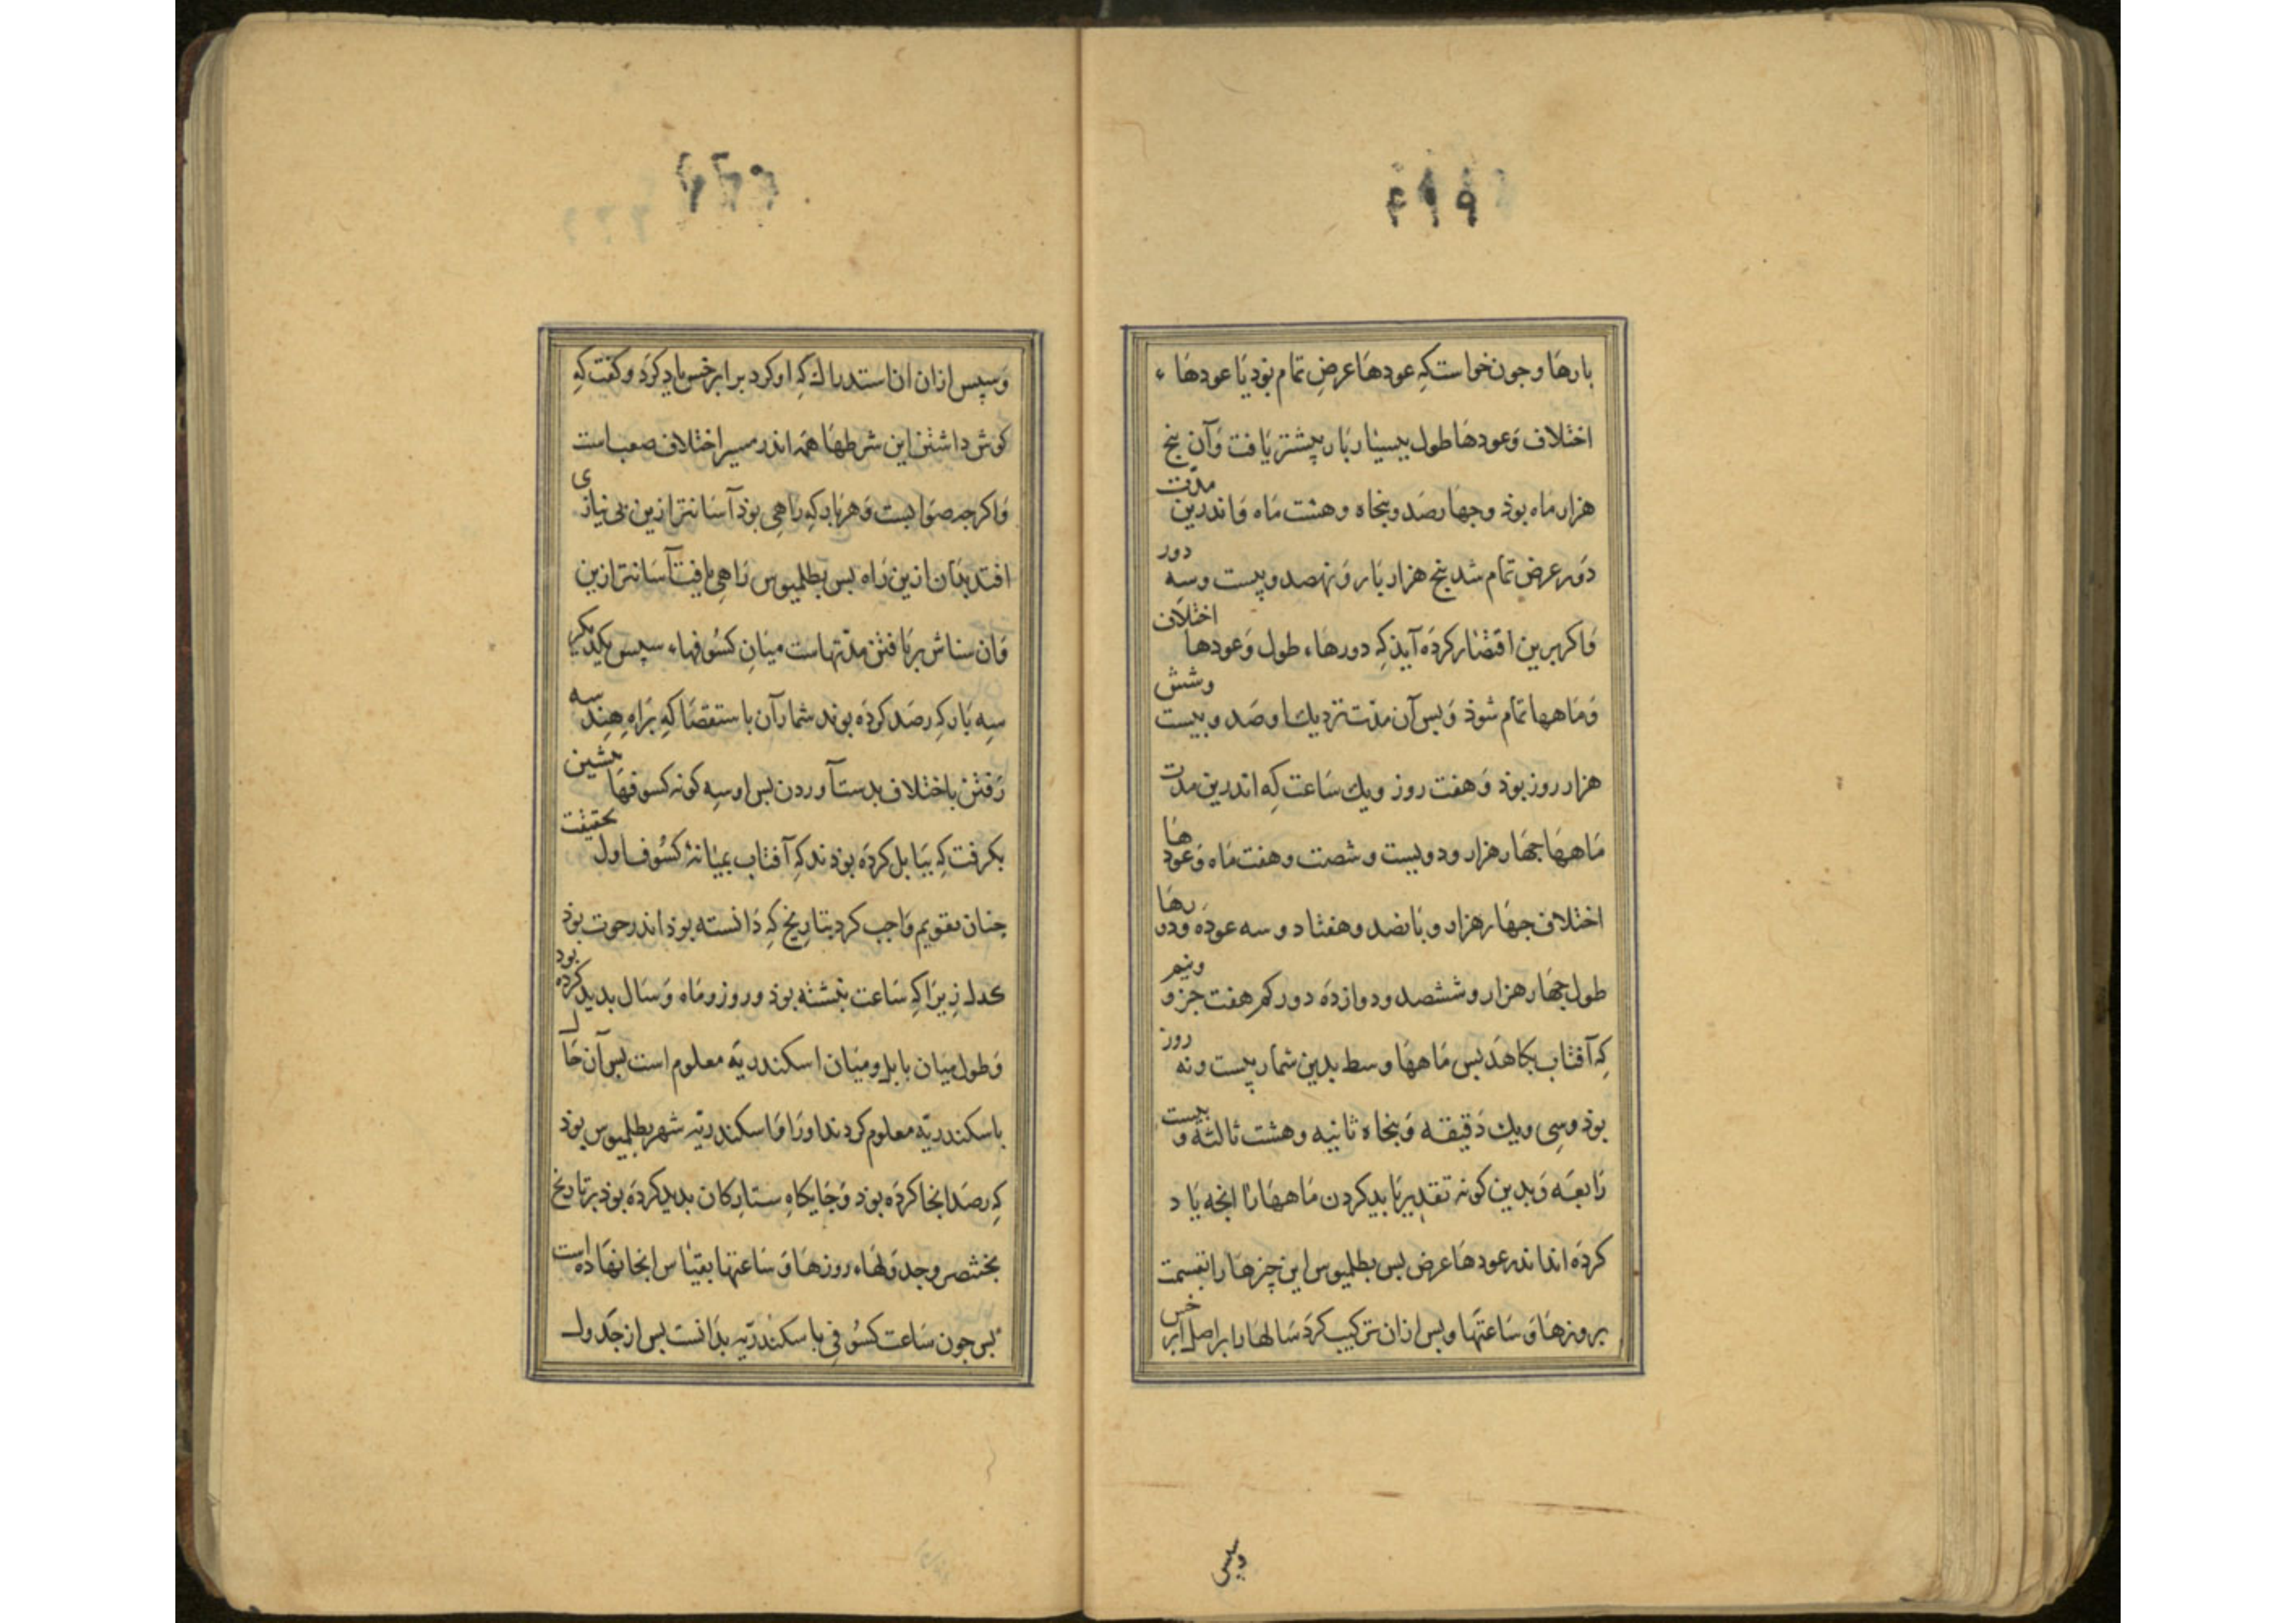 بارها و جون خواست کِه عودهَا عرضِ تمام بوَد یَا عودهَاء
اختلاف وَعودهَا طول بیسیار بَار پیشتر یَافت وَآن پنج
هزار مَاه بوذ وجهَارصَد وپنجاه وهشت مَاه وَاندرین مدّت
دَور عرض تمام شد پنج هزار بَار وَنهصد وبیست وسَه دور
وَاکر برین اقتصَار کردَه آیذ کِه دورهَاء طول وَعودهَا اختلاف
وَمَاهها تمام شوذ وَبس آن مدّت نزدیك او صَد وبیست وشش
هزار روز بوَذ وَهفت روز ویك سَاعت کِه اندرین مدت
مَاههَا جهَار هزار ودویست وشصت وهفت مَاه وَعودهَا
اختلاف جهَار هزار وبَانصد وهفتاد وسه عودَه وَدورهَا
طول جهَار هزار وششصد ودوازدَه دور کم هفت جزو ونیم
کِه آفتاب بکاهَد بس مَاههَا وسط بدین شمَار بیست ونه روز
بوَذ وسِی ویك دَقیقَه وَپنجاه ثانیه وهشت ثالثه وبیست
رَابعَه وَبدین کونه تقدیر بَاید کردن مَاههَا رَا انجه یَاد
کردَه اند اندر عودهَا عرض بس بطلمیوس این جیزهَا را بقسمت
بروزهَا وَسَاعتهَا وبس ازان ترکیب کردَ سَالهَا را بر اصل ابرخس
وبس
وَسپس ازان ان استدراك کِه او کرد بر ابرخس یاد کرَد وکفت کِه
کوش داشتن این شرطهَا همَه اندر مسیر اختلاف صعب است
وَاکرجه صوَابست وَهر بَار کِه رَاهِی بوذ آسَانتر ازین بی نیازی
افتد بدَان ازین رَاه بس بطلمیوس رَاهِی یافت آسَانتر ازین
وَان سناش بر یَافتن مدّتهاست میَان کسُوفهاء سپس یکدیکر
سِه بَار کِه رصَد کردَه بوند شمار آن باستقصَا کِه برَاهِ هِند سه
رَفتن باختلاف بدست آوردن بس او سِه کونه کسوفهَا پشین
بکرفت کِه ببَابل کردَه بوذند کِه آفتاب بمیَانۀ کسُوف اول بحقیقت
جنان تقویم وَاجب کرد بتاریخ کِه دَانسته بوذ اندر حوت بوَذ
کحد له زیرَا کِه سَاعت نبشته بوَذ وروز ومَاه وَسَال بدید کرده بود
وَطول میَان بابل ومیَان اسکندریّه معلوم است بس آن حَال
باسکندریّه معلوم کردند اورَا وَاسکندریّه شهر بطلمیوس بوذ
کِه رصَد انجا کردَه بوَذ وَجَایکاهِ ستارکان بدید کردَه بوذ بر تاریخ
بختنصر وجدوَلهَاء روزهَا وَسَاعتها بقیَاس انجا نهَاده است
بس جون سَاعت کسُوفی باسکندریّه بدَانست بس از جَدول